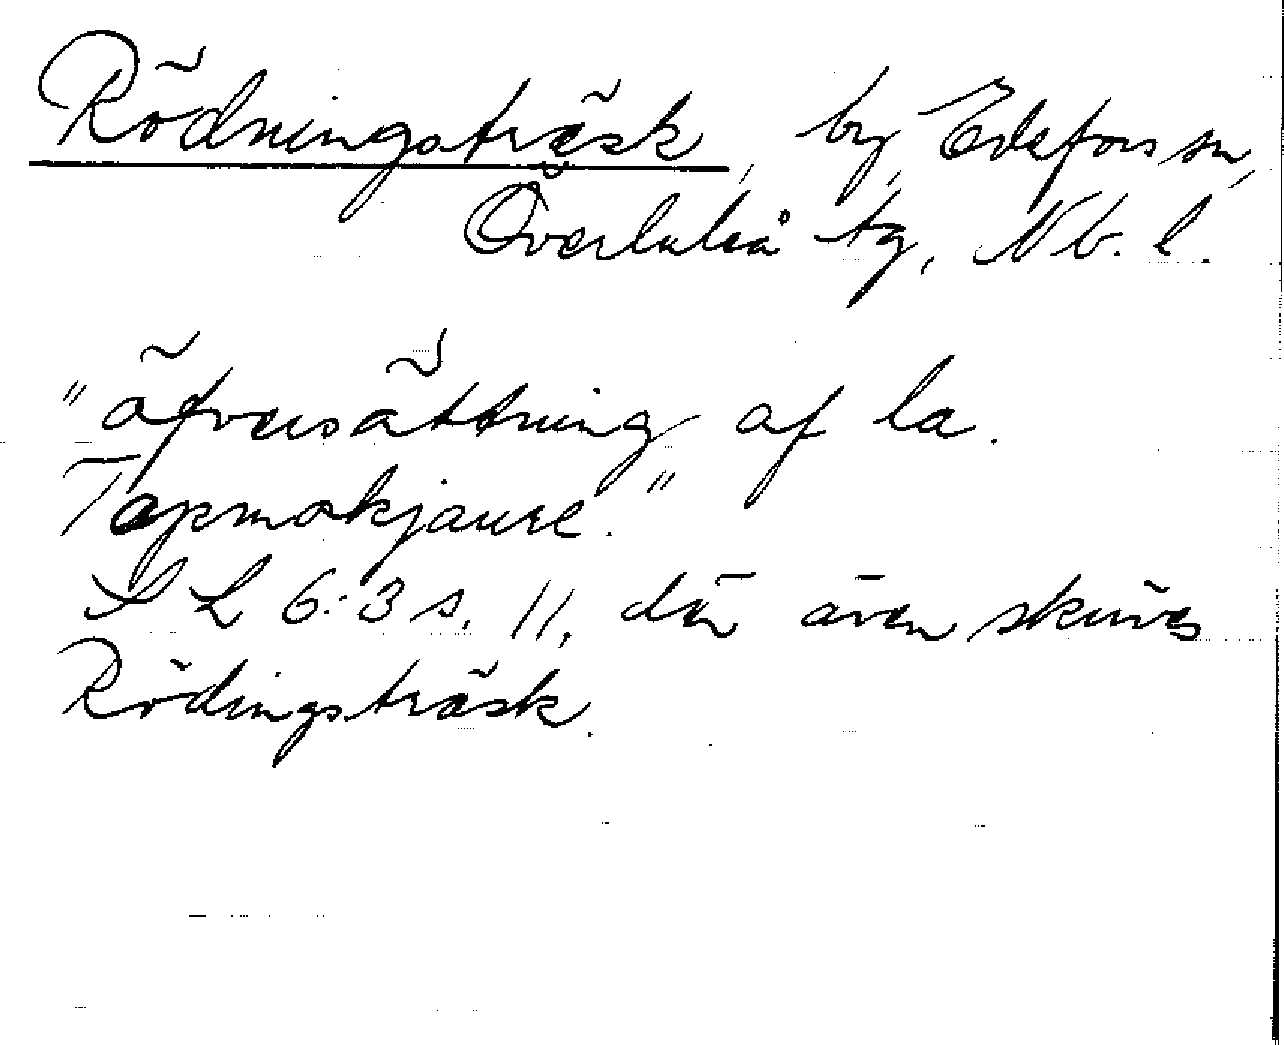 Rödningsträsk, by, Edefors sn,
Överluleå tg, Nb. l.
"öfversättning af la.
Tapmokjaure."
SL 6:3 s. 11, där även skrives
Rödingsträsk.